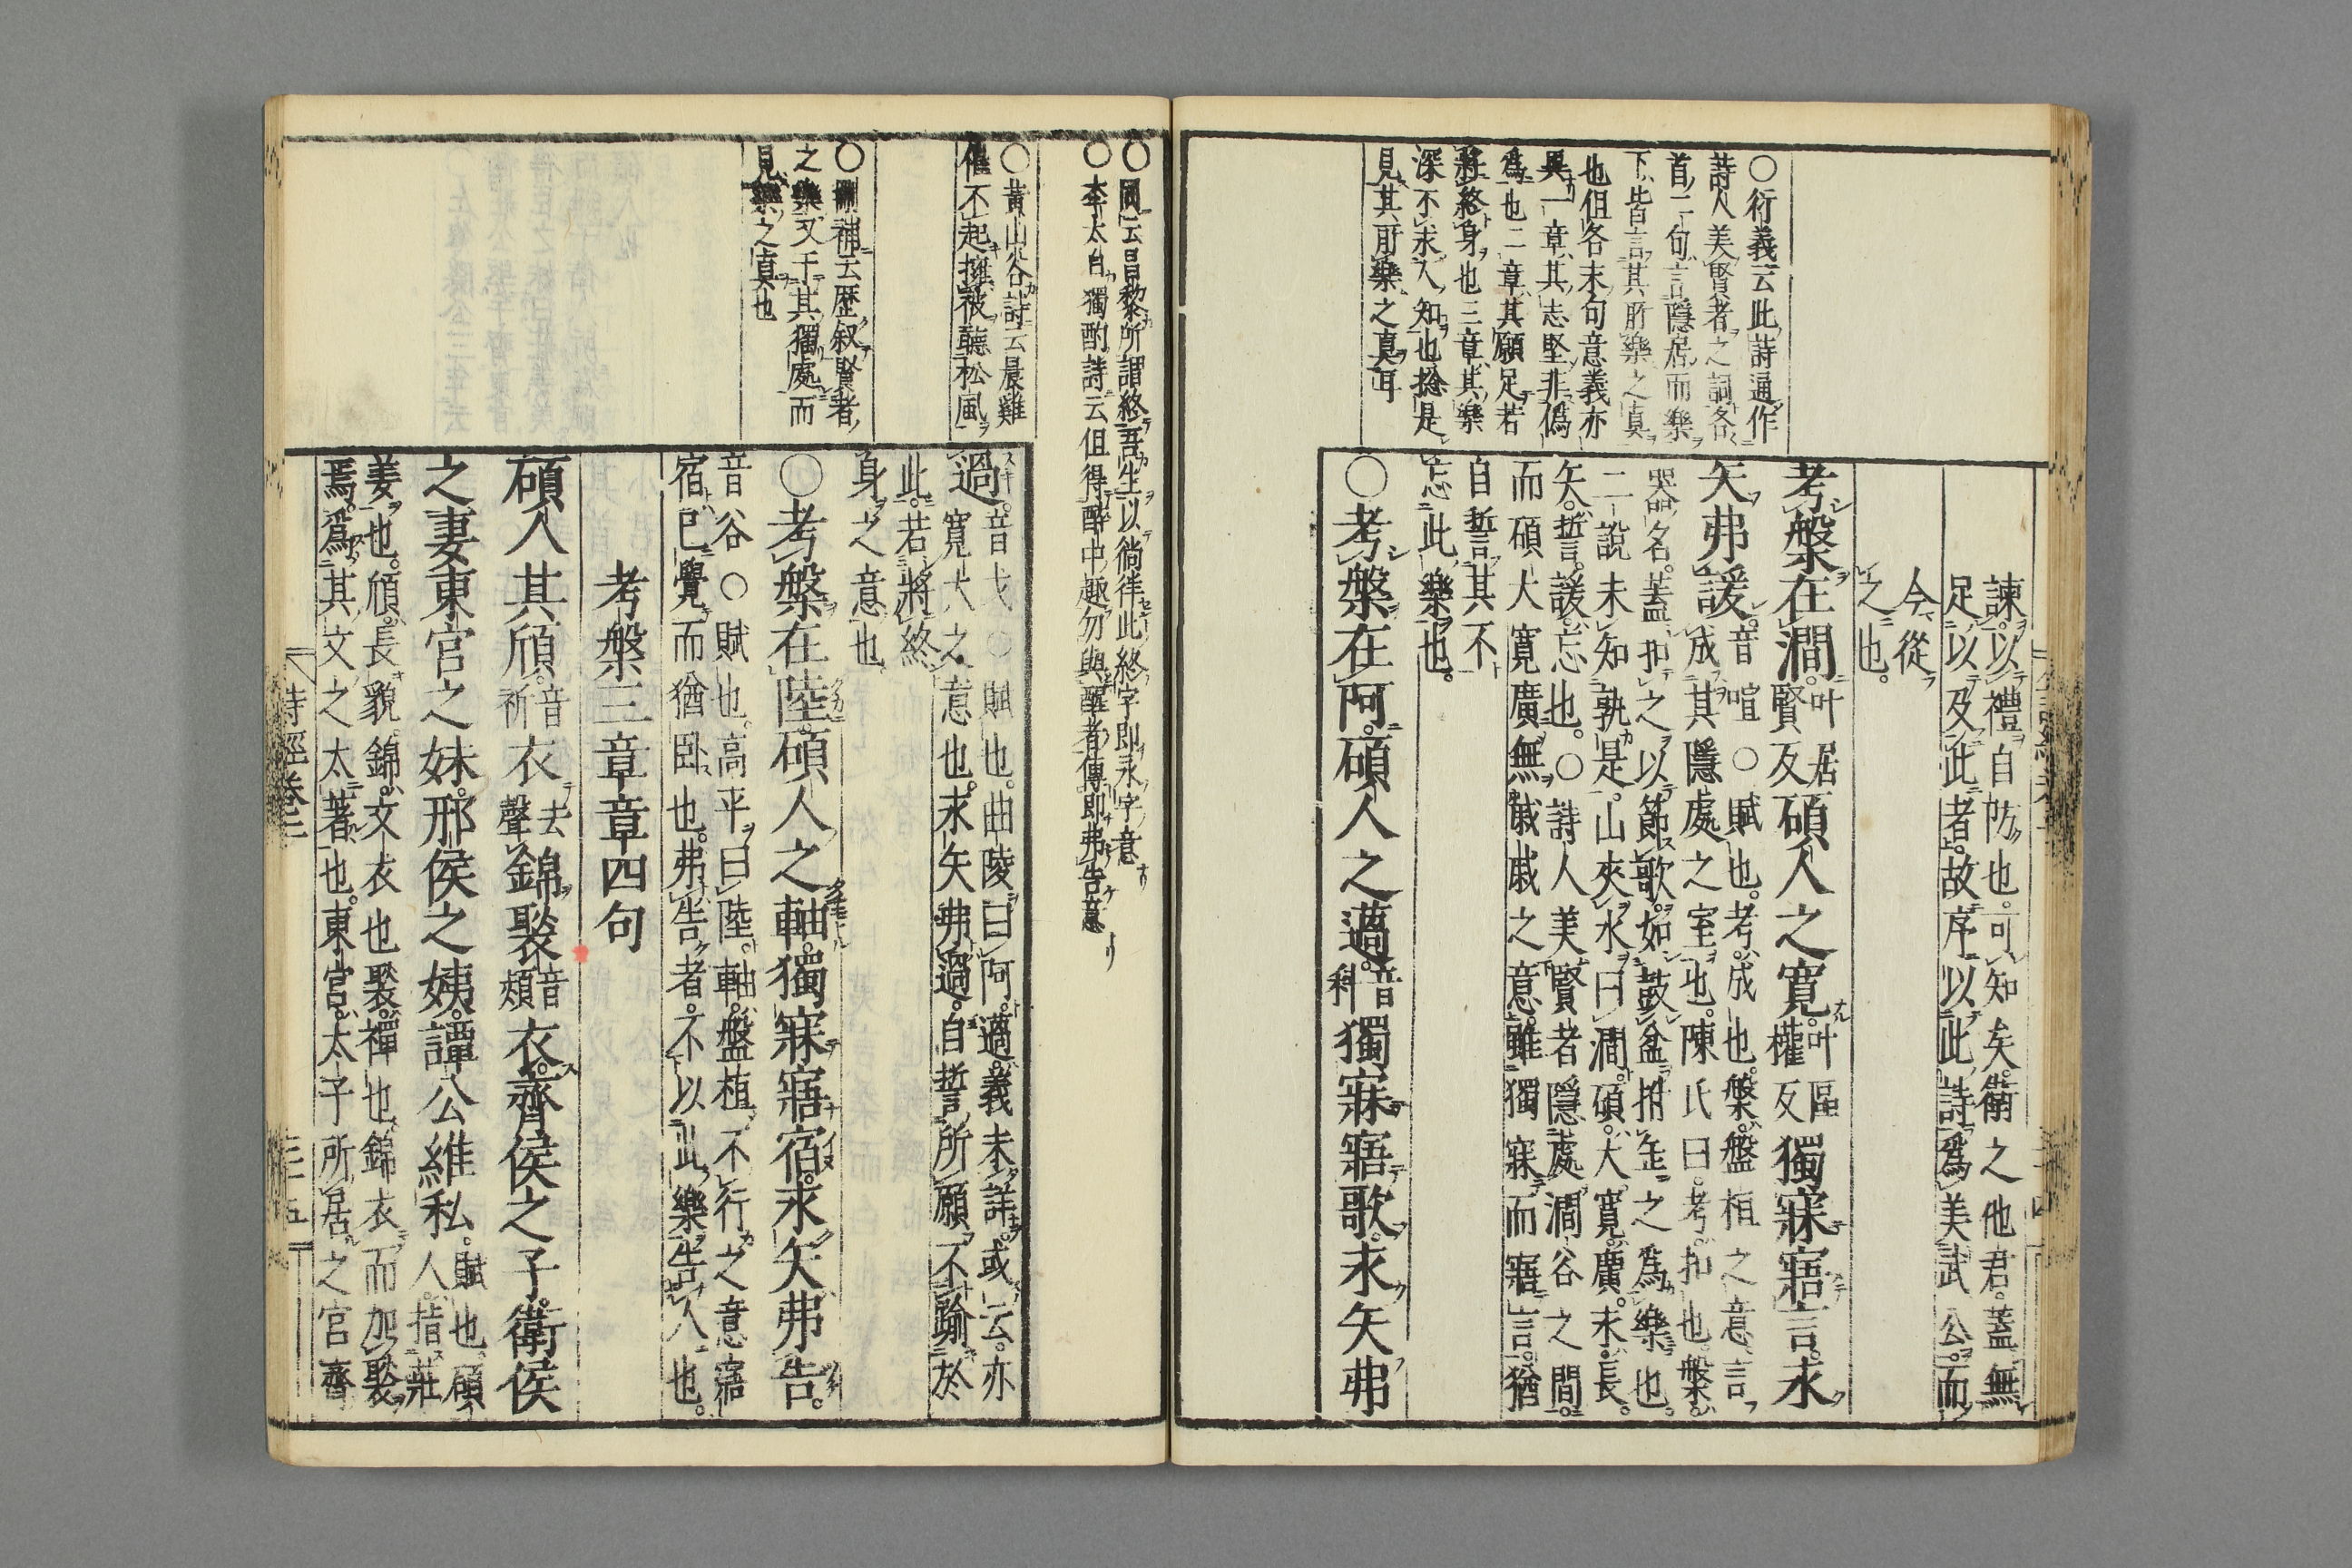 諫以禮自防也可知矣衛之他君蓋無
足以及此者故序以此詩爲美武公而
今從
之也
考槃在澗叶居賢反碩人之寬叶區權反獨寐寤言永
矢弗諼音喧○賦也考成也槃盤桓之意言
成其隱處之室也陳氏曰考扣也槃
器名蓋扣之以節歌如鼓盆拊缶之爲樂也
二說未知孰是山夾水曰澗碩大寬廣永長
矢誓諼忘也○詩人美賢者隱處澗谷之間
而碩大寬廣無戚戚之意雖獨寐而寤言猶
自誓其不
忘此樂也
○考槃在阿碩人之薖音科獨寐寤歌永矢弗
○衍義云此詩通作
詩人美賢者之詞各
首二句言隱居而樂
下皆言其所樂之真
也但各末句意義亦
異一章其志堅非偽
爲也二章其願足若
將終身也三章其樂
深不求人知也捴是
見其所樂之真耳
○圖云昌黎所謂終吾生以徜徉此終字即永字意
○李太白獨酌詩云但得醉中趣勿與醒者傳即弗告意
過音戈○賦也曲陵曰阿薖義未詳或云亦
寬大之意也永矢弗過自誓所願不踰於
此若將終
身之意也
○考槃在陸碩人之軸獨寐寤宿永矢弗告
音谷○賦也高平曰陸軸盤桓不行之意寤
宿已覺而猶臥也弗告者不以此樂告人也
考槃三章章四句
碩人其頎音祈衣去聲錦褧音熲衣齊侯之子衛侯
之妻東宮之妹邢侯之姨譚公維私賦也碩人指莊
姜也頎長貌錦文衣也褧襌也錦衣而加褧
焉爲其文之太著也東宮太子所居之官齊
○黃山谷詩云晨雞
催不起擁被聽松風
○刪補云歷叙賢者
之樂又于其獨處而
見樂之真也
詩經卷三
三十五